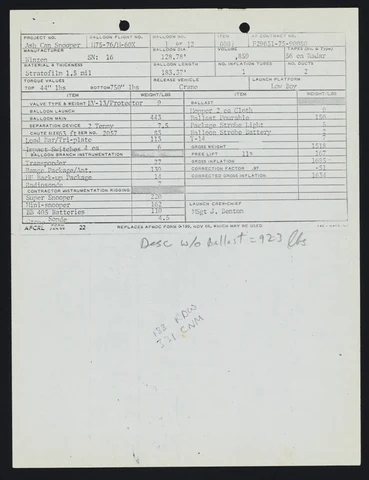 PROJECT NO. BALLOON FLIGHT NO. BALLOON NO. ITEM NO. AF CONTRACT NO.
Ash Can Snooper H75-76/H-60X 1 of 12 0001
MANUFACTURER BALLOON DIA VOLUME TAPES (No. & Type)
Winzen SN: 16 128.78' .859 56 on Radar
MATERIAL & THICKNESS BALLOON LENGTH NO. INFLATION TUBES NO. DUCTS
Stratofilm 1.5 mil 183.37' 1 2
TORQUE VALUES RELEASE VEHICLE LAUNCH PLATFORM
TOP 44" lbs BOTTOM 750" lbs Crane Low Boy
ITEM WEIGHT/LBS ITEM WEIGHT/LBS
VALVE TYPE & WEIGHT EV-13/Protector 9 BALLAST
BALLOON LAUNCH Hopper 2 ea Cloth 8
BALLOON MAIN 443 Ballast Pourable
SEPARATION DEVICE 2 Tenny 7.5 Package Strobe Light 5
SER NO. 2057 83 Balloon Strobe Battery
Load Bar/Tri-plate 115
Impact Switches 4 ea 6 GROSS WEIGHT 1518
BALLOON BRANCH INSTRUMENTATION FREE LIFT 11% 167
Transponder 27 GROSS INFLATION 1685
Range Package/Ant. 130 CORRECTION FACTOR .97 -51
HF Back-up Package 14 CORRECTED GROSS INFLATION 1634
Radiosonde
CONTRACTOR INSTRUMENTATION RIGGING
Super Snooper 220 LAUNCH CREWCHIEF
Mini-snooper 162 MSgt J. Denton
EB 403 Batteries 118
Sonde 4.5
AFCRL FORM 22 REPLACES AFMDC FORM 0-180, NOV 65, WHICH MAY BE USED
Desc w/o Ballast = 923 lbs